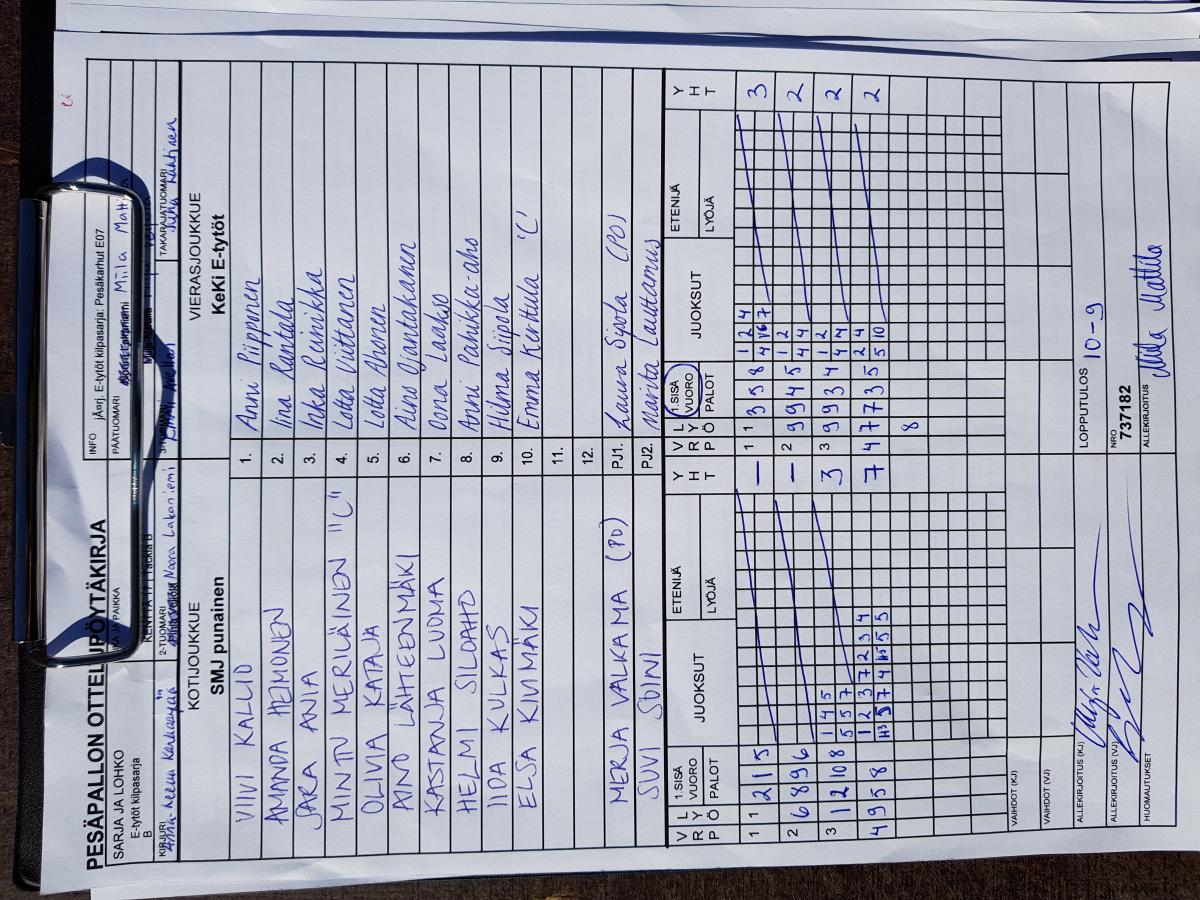 PESÄPALLON OTTELUPÖYTÄKIRJA
SARJA JA LOHKO
E-tytöt kilpasarja
B
KA JA PAIKKA
INFO jÄrj. E-tytöt kilpasarja: Pesäkarhut E07
PÄÄTUOMARI Miila
KIRJURI
2-TUOMARI Noora Lakaniemi
TAKARAJATUOMARI
KOTIJOUKKUE VIERASJOUKKUE
SMJ punainen KeKi E-tytöt
VIIVI KALLIO 1. Anni Piipponen
AMANDA HEIMONEN 2. Iina Rantala
SARA ANIA 3. Inka Reinikka
MINTTU MERILÄINEN "C" 4. Lotta Viittanen
OLIVIA KATAJA 5. Lotta Ahonen
AINO LÄHTEENMÄKI 6. Aino Ojantakanen
KASTANJA LUOMA 7. Oona Laakso
HELMI SILOAHO 8. Anni Pahikka-aho
IIDA KULKAS 9. Hilma Siipola
ELSA KIVIMÄKI 10. Emma Kerttula "C"
11.
12.
MERJA VALKAMA (PD) PJ1. Laura Sipola (PD)
SUVI SUINI PJ2. Marita Lauttamus
V R L Y P Ö 1.SISÄ VUORO PALOT JUOKSUT ETENIJÄ LYÖJÄ Y H T V R L Y P Ö 1.SISÄ VUORO PALOT JUOKSUT ETENIJÄ LYÖJÄ Y H T
1 2 1 5 – 1 1 3 5 8 1 2 4 3
2 6 8 9 6 – 2 9 9 4 5 1 2 2
4 4
3 1 2 10 8 1 4 5 3 3 9 9 3 4 1 2 2
5 5 7 4 4
4 9 5 8 1 2 3 7 2 3 4 7 4 7 7 3 5 2 4 2
5 10
8
VAIHDOT (KJ)
VAIHDOT (VJ)
ALLEKIRJOITUS (KJ) LOPPUTULOS 10-9
ALLEKIRJOITUS (VJ) NRO
737182
HUOMAUTUKSET ALLEKIRJOITUS Miila Mattila